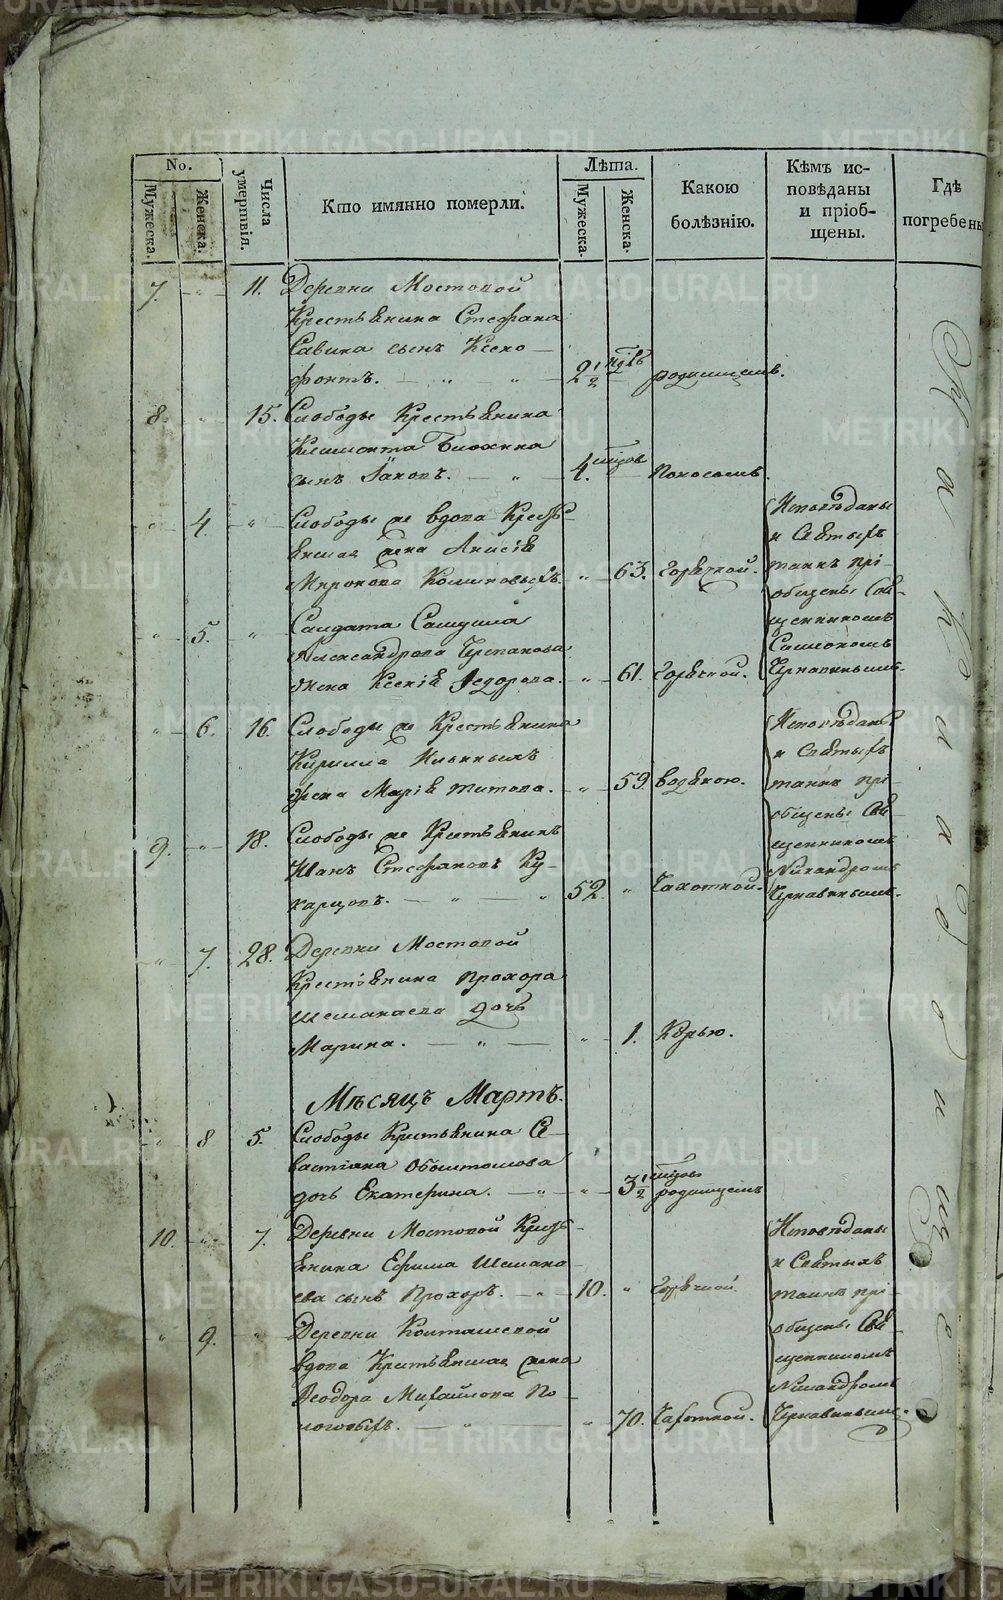 METRIKI.GASO-URAL.RU
No.
Мужеска.
Женска.
Числа умертвія.
Кто имянно померли.
Лѣта.
Мужеска.
Женска.
Какою болѣзнію.
Кѣмъ исповѣданы и пріобщены.
Где погребены
7. 11. Деревни Мостовой
Крестьянина Стефана
Савина сынъ Ксено-
фонтъ. 2 1/2 родимцемъ.
8. 15. Слободы Крестьянина
Климонта
сынъ Іаковъ. 4. Поносомъ.
4. Слободы же вдова Кресть-
янская жена Анисія
Миронова 63. горячкой.
Исповѣданы
и Святыхъ
таинъ прі-
общены Свя-
щенникомъ
Симономъ
Чернавинымъ.
5. Солдата Самуила
Александрова Черпакова
жена Ксенія Федорова. 61. горячкой.
6. 16. Слободы же Крестьянина
Кирилла Ильиныхъ
жена Марія Титова. 59. водяною.
Исповѣданы
и Святыхъ
таинъ прі-
общены Свя-
щенникомъ
Никандромъ
Чернавинымъ.
9. 18. Слободы же Крестьянинъ
Иванъ Стефановъ Ку-
карцовъ. 52. Чахоткой.
7. 28. Деревни Мостовой
Крестьянина Прохора
Шеманаева дочь
Марина. 1. Корью.
Мѣсяцъ Мартъ.
8 5. Слободы Крестьянина Се-
вастіана
дочь Екатерина. 3 1/2 родимцемъ
10. 7. Деревни Мостовой Кресть-
янина Ефима Шемана-
ева сынъ Прохоръ. 10. горячкой.
Исповѣданы
и Святыхъ
таинъ прі-
общены Свя-
щенникомъ
Никандромъ
Чернавинымъ.
9. Деревни
вдова Крестьянская жена
Ѳеодора Михайлова По-
70. Чахоткой.
На кладбище